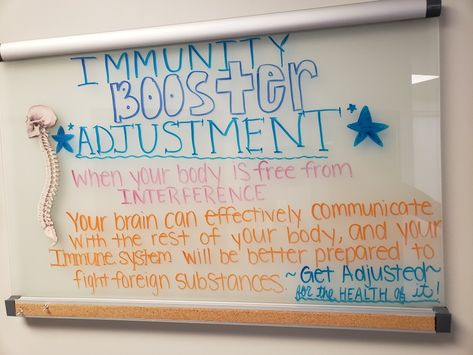 IMMUNITY
BOOSter
"ADJUSTMENT"
When your body is free from
INTERFERENCE
Your brain can effectively communicate
with the rest of your body, and your
Immune system will be better prepared to
fight foreign substances.
~ Get Adjusted ~
for the HEALTH of it!